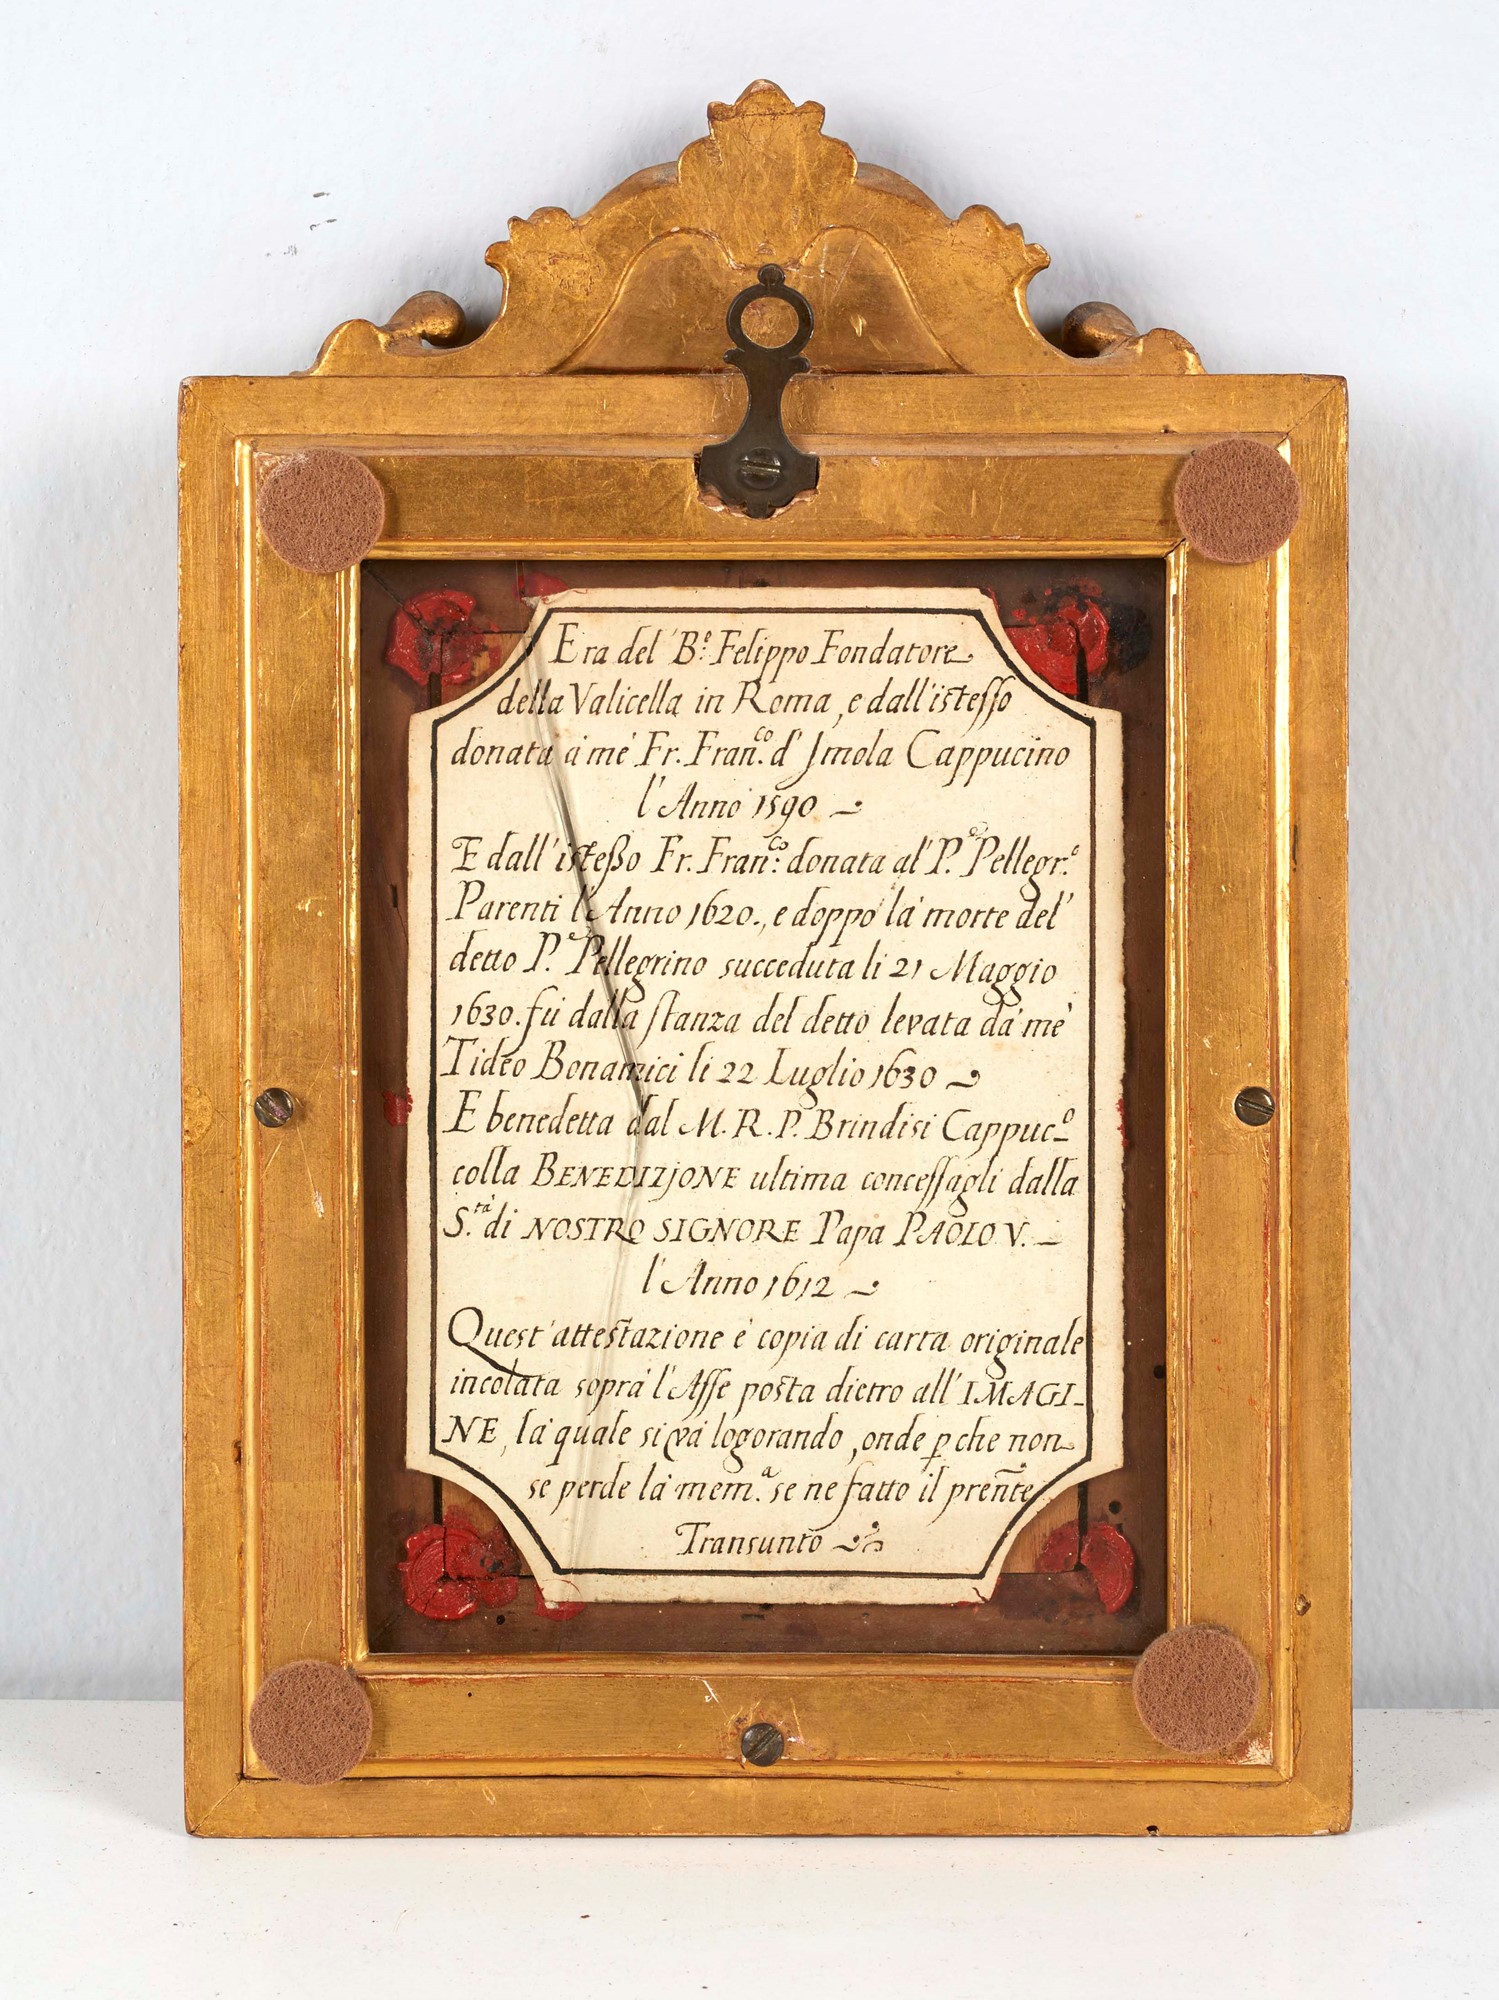 Era del B.º Felippo Fondatore
della Valicella in Roma, e dall'istesso
donata à mè Fr. Fran.co d' Jmola Cappucino
l'Anno 1590
E dall'isteßo Fr. Fran.co: donata al P.e Pellegr.º
Parenti l'Anno 1620., e doppo la morte del
detto P.e Pellegrino succeduta li 21 Maggio
1630. fù dalla stanza del detto levata da mè
Tideo Bonamici li 22 Luglio 1630
E benedetta dal M. R. P. Brindisi Cappuc.º
colla BENEDIZJONE ultima concessagli dalla
S.tà di NOSTRO SIGNORE Papa PAOLO V.
l'Anno 1612
Quest'attestazione è copia di carta originale
incolata soprà l'Asse posta dietro all' IMAGI-
NE, la quale si và logorando, onde p̱che non
se perde là mem.a se ne fatto il prẽnte
Transunto